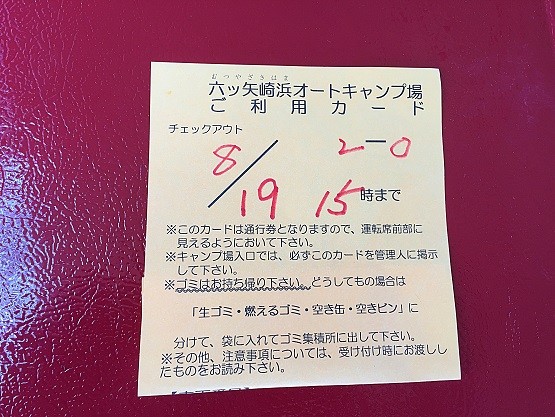 むつやざきはま
六ッ矢崎浜オートキャンプ場
ご利用カード
チェックアウト
8/19 2-0
15時まで
※このカードは通行券となりますので、運転席前部に
見えるようにおいて下さい。
※キャンプ場入口では、必ずこのカードを管理人に掲示
して下さい。
※ゴミはお持ち帰り下さい。どうしてもの場合は
「生ゴミ・燃えるゴミ・空き缶・空きビン」に
分けて、袋に入れてゴミ集積所に出して下さい。
※その他、注意事項については、受け付け時にお渡しし
たものをお読み下さい。